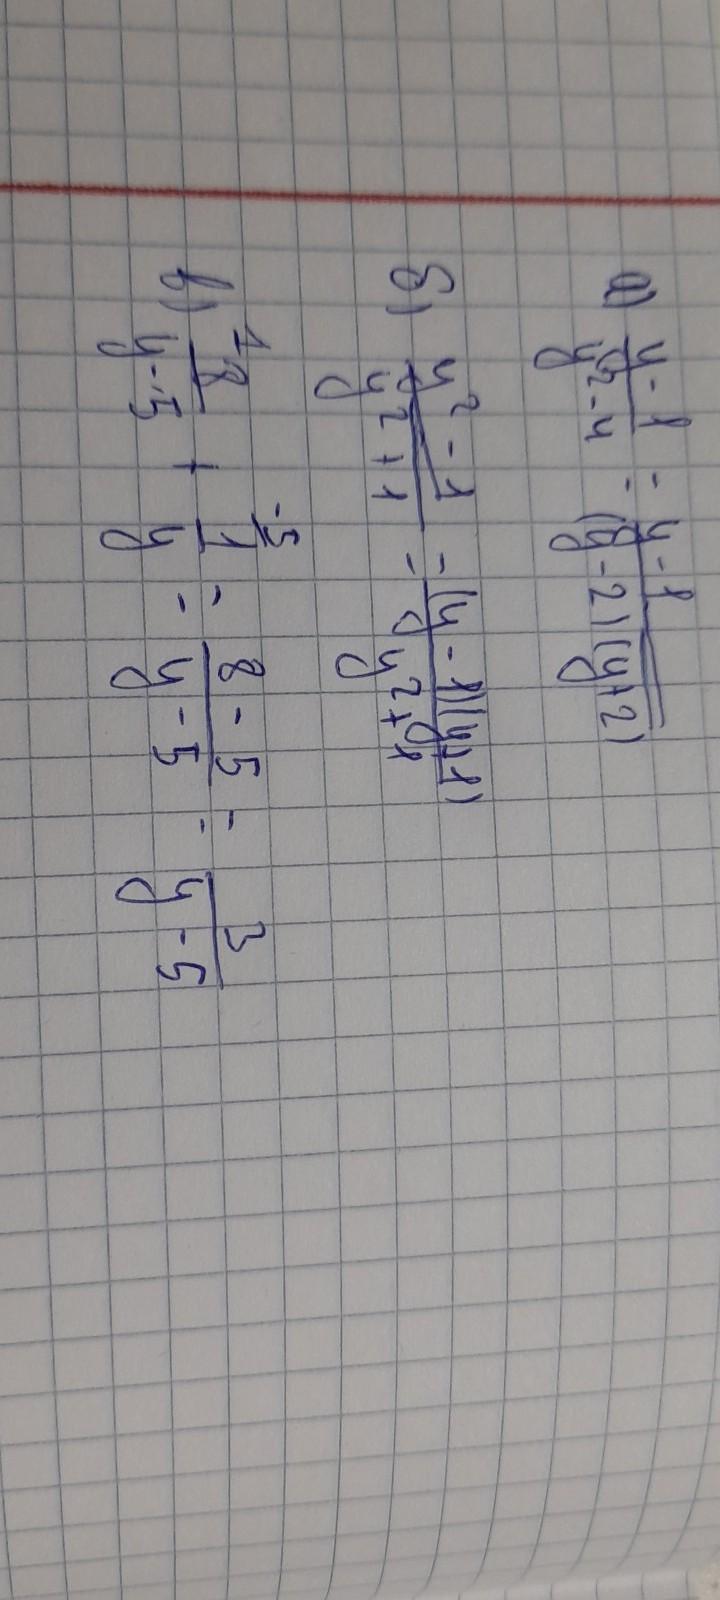 а) y-1/y²-4 = y-1/(y-2)(y+2)
б) y²-1/y²+1 = (y-1)(y+1)/y²+1
в) 1 8/y-5 + -5 1/y = 8-5/y-5 = 3/y-5